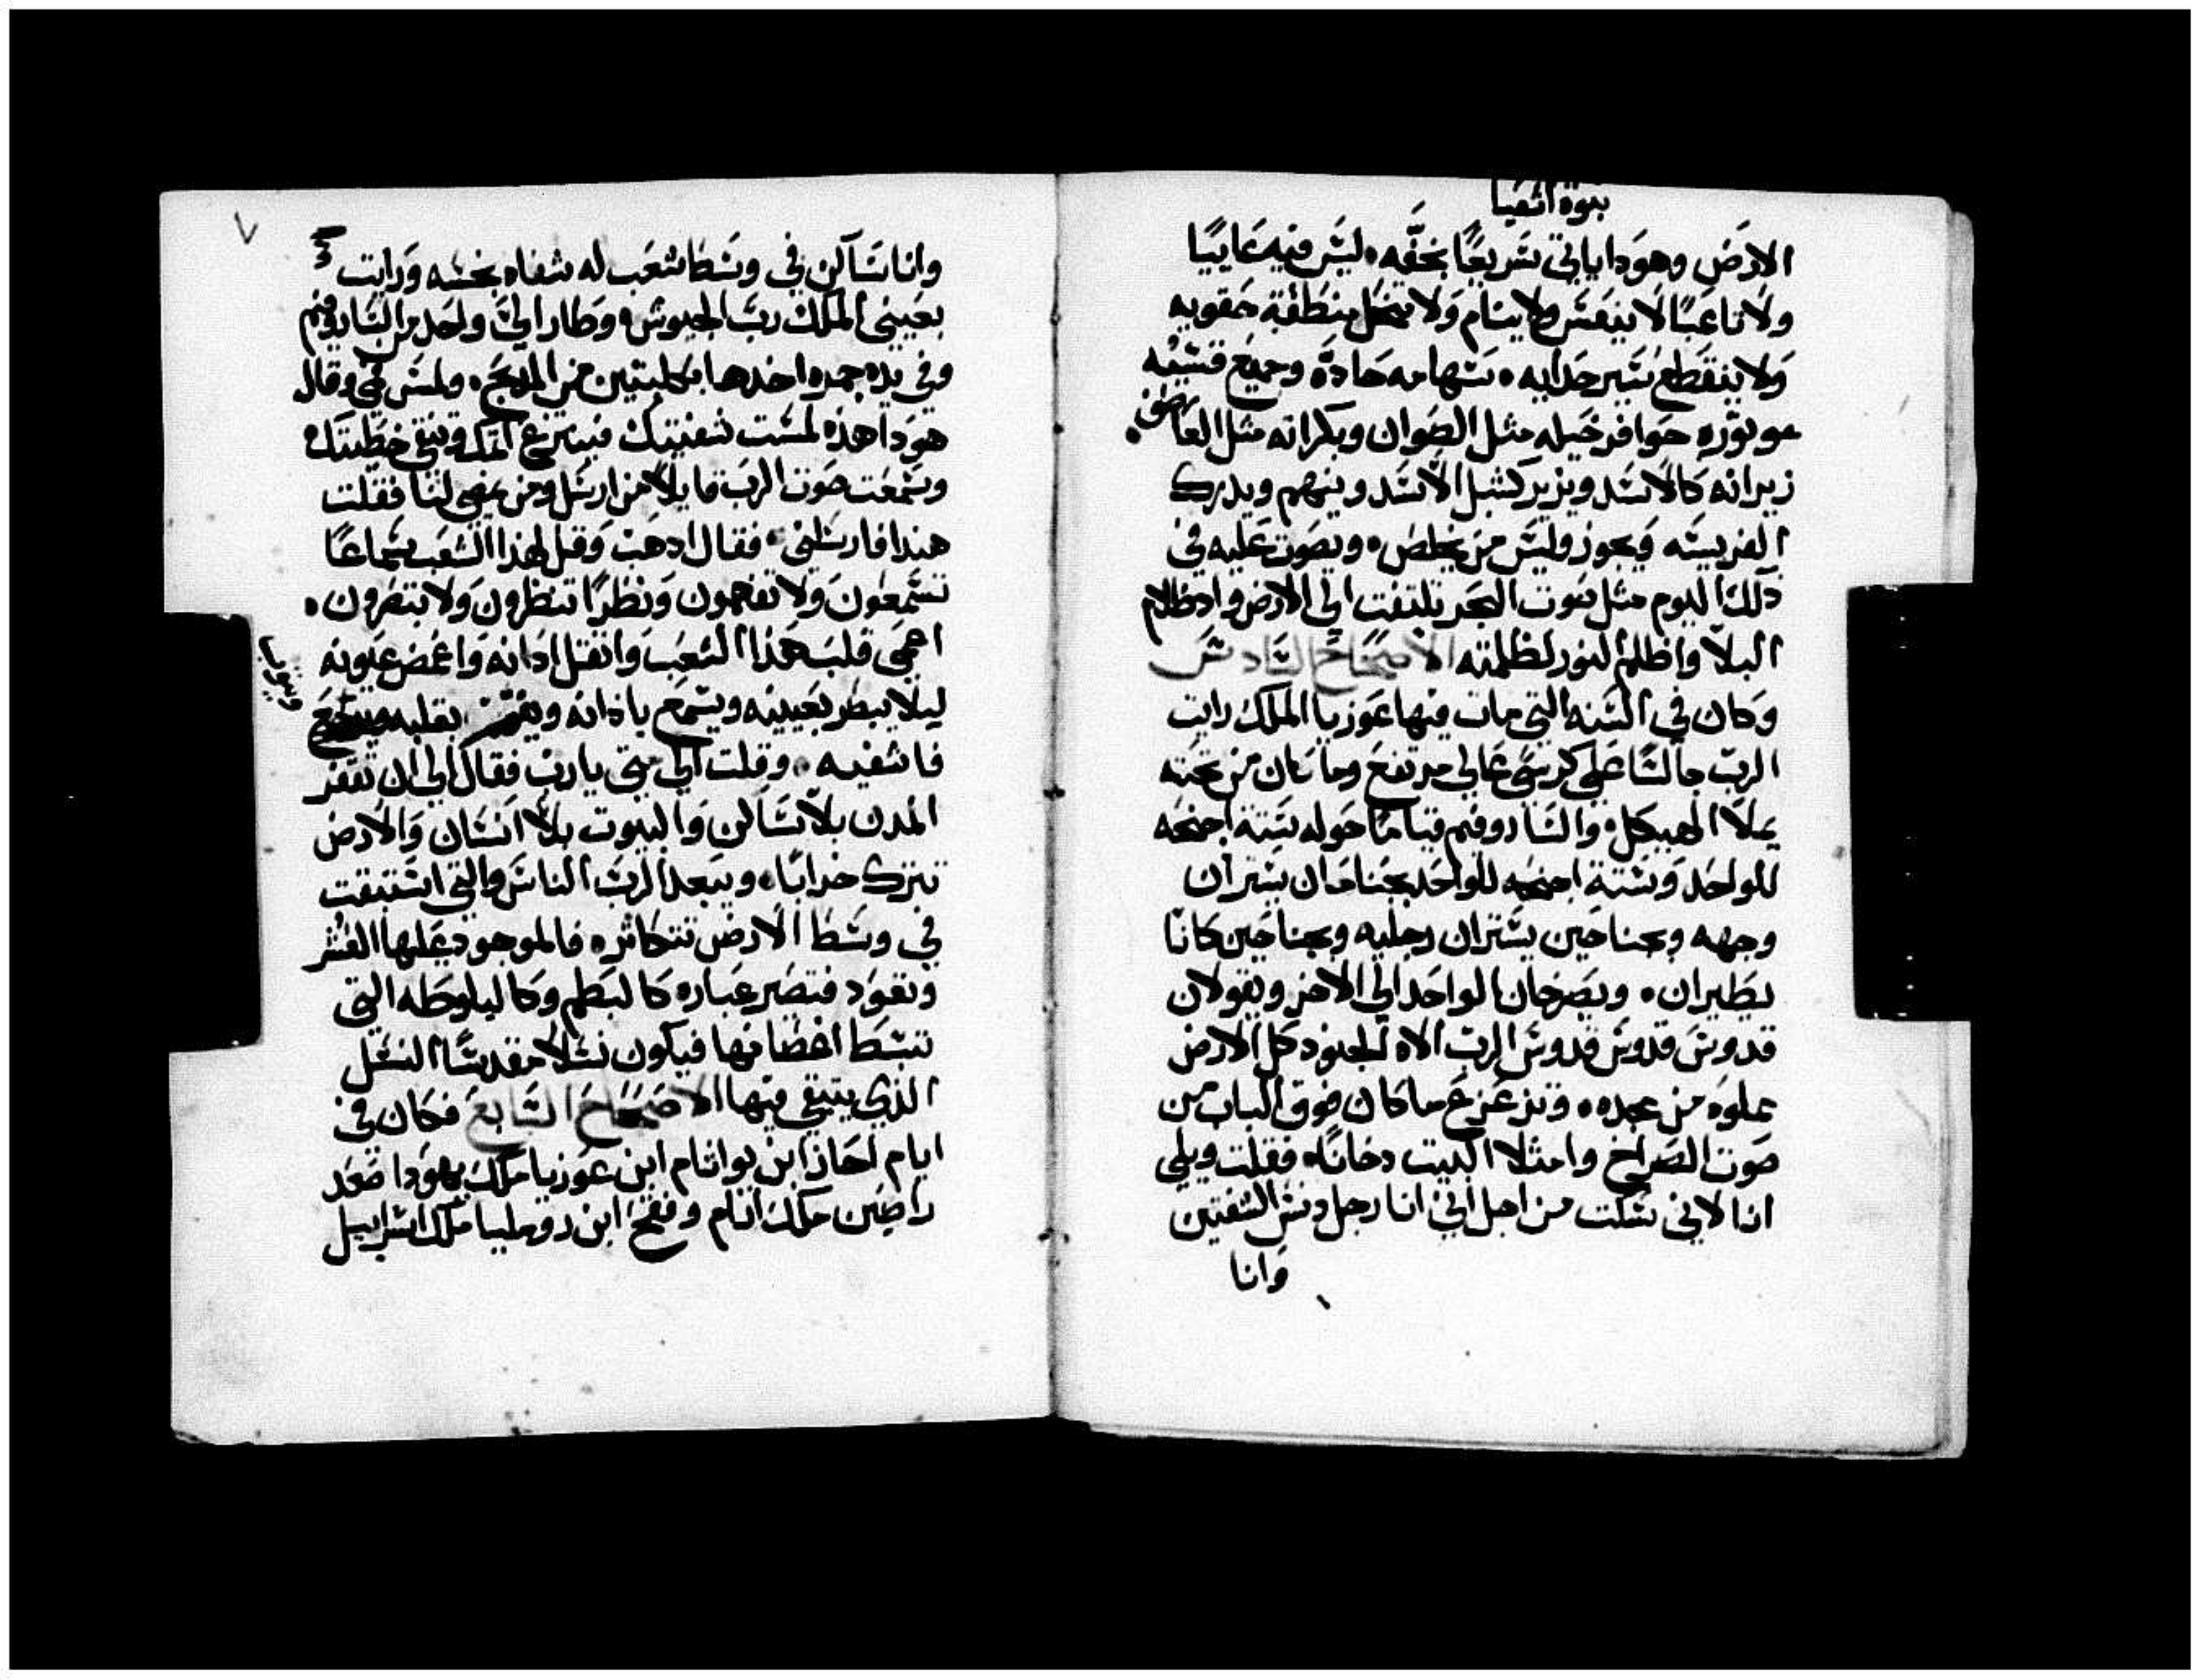 نبوة اشعيا
الارض وهوذا ياتي سريعًا بخفّه ليس فيه عاييًا
ولا تاعبًا لا ينعس ولا ينام ولا تنحل منطقة حقويه
ولا ينقطع سير حدايه سهامه حادة وجميع قسيه
موتوره حوافر خيله مثل الصوان وبكراته مثل العاصف
زيرانه كالاسد ويزير كشبل الاسد وينهم ويدرك
الفريسه ويجوز وليس من يخلص ويصوت عليه في
ذلك اليوم مثل صوت البحر نلتفت الي الارض واذ ظلام
البلا واظلم النور لظلمته الاصحاح السادس
وكان في السنه التي مات فيها عوزيا الملك رايت
الرب جالسًا علي كرسي عالي مرتفع وما كان من تحته
يملا الهيكل والساروفيم قيامًا حوله ستة اجنحه
للواحد وستة اجنحه للواحد بجناحان يستران
وجهه وبجناحين يستران رجليه وبجناحين كانا
يطيران ويصرخان الواحد الي الاخر ويقولان
قدوس قدوس قدوس الرب الاه الجنود كل الارض
مملوه من مجده وتزعزع ما كان فوق الباب من
صوت الصراخ وامتلا البيت دخانًا فقلت ويلي
انا لاني سكت من اجل اني انا رجل دنس الشفتين
وانا
٧
وانا ساكن في وسط شعب له شفاه نجسه ورايت
بعيني الملك رب الجيوش وطار اليَّ واحد من السارفيم
وفي يده جمره اخذها بكلبتين من المذبح ولمس فمي وقال
هوذا هذه لمست شفتيك فينتزع اثمك وتنقي خطيتك
وسمعت صوت الرب قايلاً من ارسل ومن يمضي لنا فقلت
هنذا فارسلني فقال اذهب وقل لهذا الشعب سماعًا
تسمعون ولا تفهمون ونظرًا تنظرون ولا تبصرون
اعمي قلب هذا الشعب واثقل اذانه واغمض عيونه
ليلا يبصر بعينيه ويسمع باذانه ويفهم بقلبه ويرجع
فاشفيه وقلت الي متي يارب فقال الي ان تقفر
المدن بلا ساكن والبيوت بلا انسان والارض
تترك خرابًا ويبعد الرب الناس والتي استبقت
في وسط الارض تتكاثر فالموجود عليها العشر
وتعود فتصير عباره كالبطم وكالبلوطه التي
تبسط اغصانها فيكون نسلاً مقدسًا النسل
الذي يتبقي فيها الاصحاح السابع فكان في
ايام احاز ابن يواثام ابن عوزيا ملك يهوذا صعد
راصين ملك ارام وفقح ابن روماليا ملك اسراييل